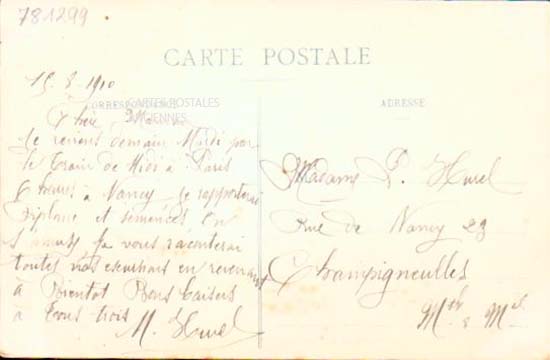 781299
CARTE POSTALE
15-8-1910
CORRESPONDANCE
CARTES POSTALES
ANCIENNES
ADRESSE
Chère
Je reviens demain Mardi par
le train de Midi à Paris
6 heures à Nancy, Je rapporterai
Diplome et semences, On
s'amuse, Je vous raconterai
toutes nos excursions en revenant
à Bientot Bons Baisers
à tous trois M. Hurel
Madame P. Hurel
Rue de Nancy 23
Champigneulles
Mthe & Mlle